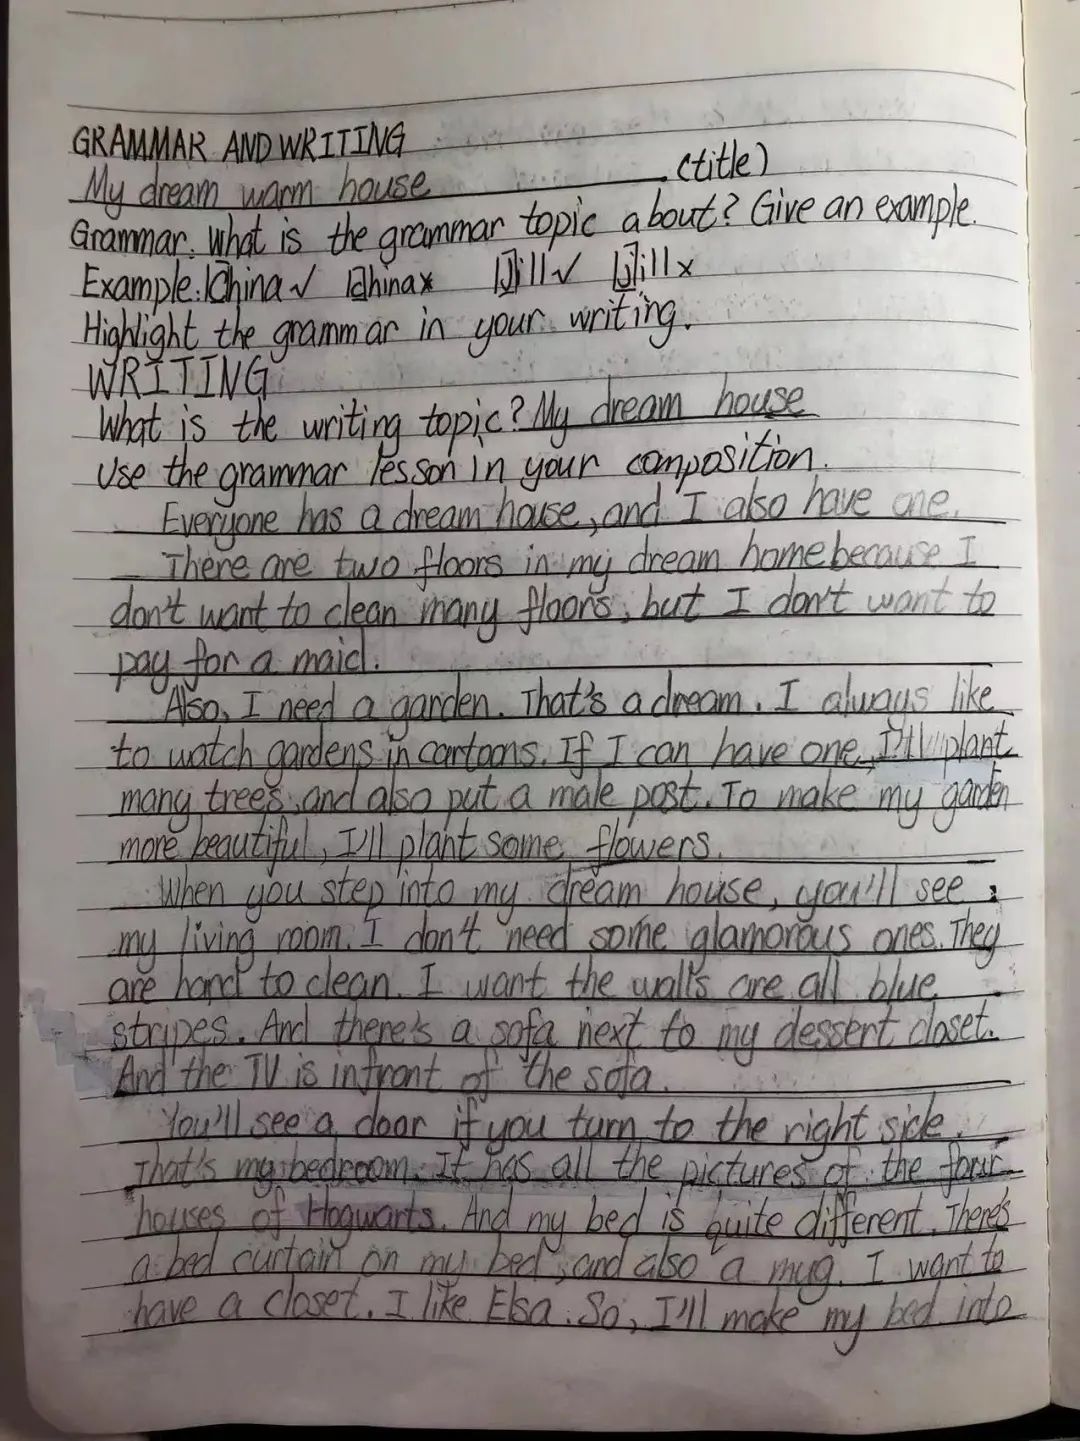 GRAMMAR AND WRITING
My dream warm house (title)
Grammar. What is the grammar topic about? Give an example.
Example: China✓ china× Jill✓ jill×
Highlight the grammar in your writing.
WRITING
What is the writing topic? My dream house
Use the grammar lesson in your composition.
Everyone has a dream house, and I also have one.
There are two floors in my dream home because I
don't want to clean many floors, but I don't want to
pay for a maid.
Also, I need a garden. That's a dream. I always like
to watch gardens in cartoons. If I can have one, I'll plant
many trees, and also put a male post. To make my garden
more beautiful, I'll plant some flowers.
When you step into my dream house, you'll see
my living room. I don't need some glamorous ones. They
are hard to clean. I want the walls are all blue
stripes. And there's a sofa next to my dessert closet.
And the TV is infront of the sofa.
You'll see a door if you turn to the right side.
That's my bedroom. It has all the pictures of the four
houses of Hogwarts. And my bed is quite different. There's
a bed curtain on my bed, and also a mug. I want to
have a closet. I like Elsa. So, I'll make my bed into